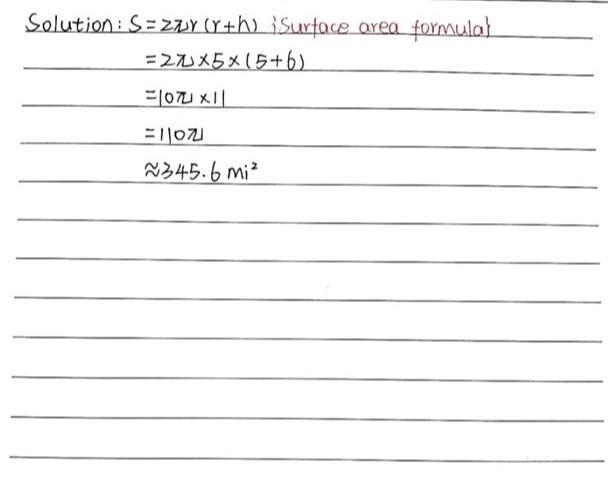 Solution: S=2πr(r+h) {Surface area formula}
=2π×5×(5+6)
=10π×11
=110π
≈345.6 mi²